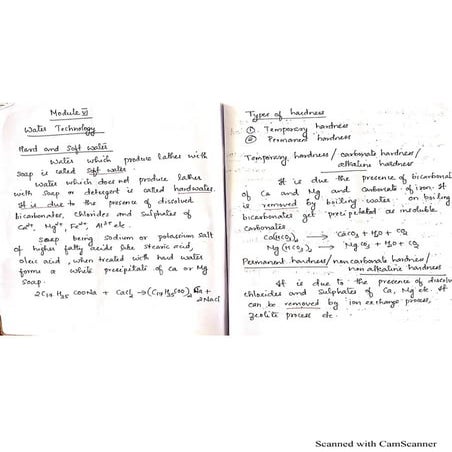 Module VI
Water Technology
Hard and Soft water
Water which produce lather with
soap is called soft water
Water which does not produce lather
with soap or detergent is called hardwater.
It is due to the presence of dissolved
bicarbonates, chlorides and sulphates of
Ca²⁺, Mg²⁺, Fe²⁺, Al³⁺ etc.
Soap being sodium or potassium salt
of higher fatty acids like stearic acid,
oleic acid, when treated with hard water
forms a white precipitate of Ca or Mg
soap.
2C₁₇H₃₅COONa + CaCl₂ → (C₁₇H₃₅COO)₂Ca +
2NaCl
Types of hardness
① Temporary hardness
② Permanent hardness
Temporary hardness / carbonate hardness /
alkaline hardness
It is due the presence of bicarbonat
of Ca and Mg and Carbonate of iron. It
is removed by boiling water. on boiling
bicarbonates get precipitated as insoluble
carbonates.
Ca(HCO₃)₂ → CaCO₃ + H₂O + CO₂
Mg(HCO₃)₂ → MgCO₃ + H₂O + CO₂
Permanent hardness / non carbonate hardness /
non alkaline hardness
It is due to the presence of dissolv
chlorides and sulphates of Ca, Mg etc. It
can be removed by ion exchange process,
zeolite process etc.
Scanned with CamScanner